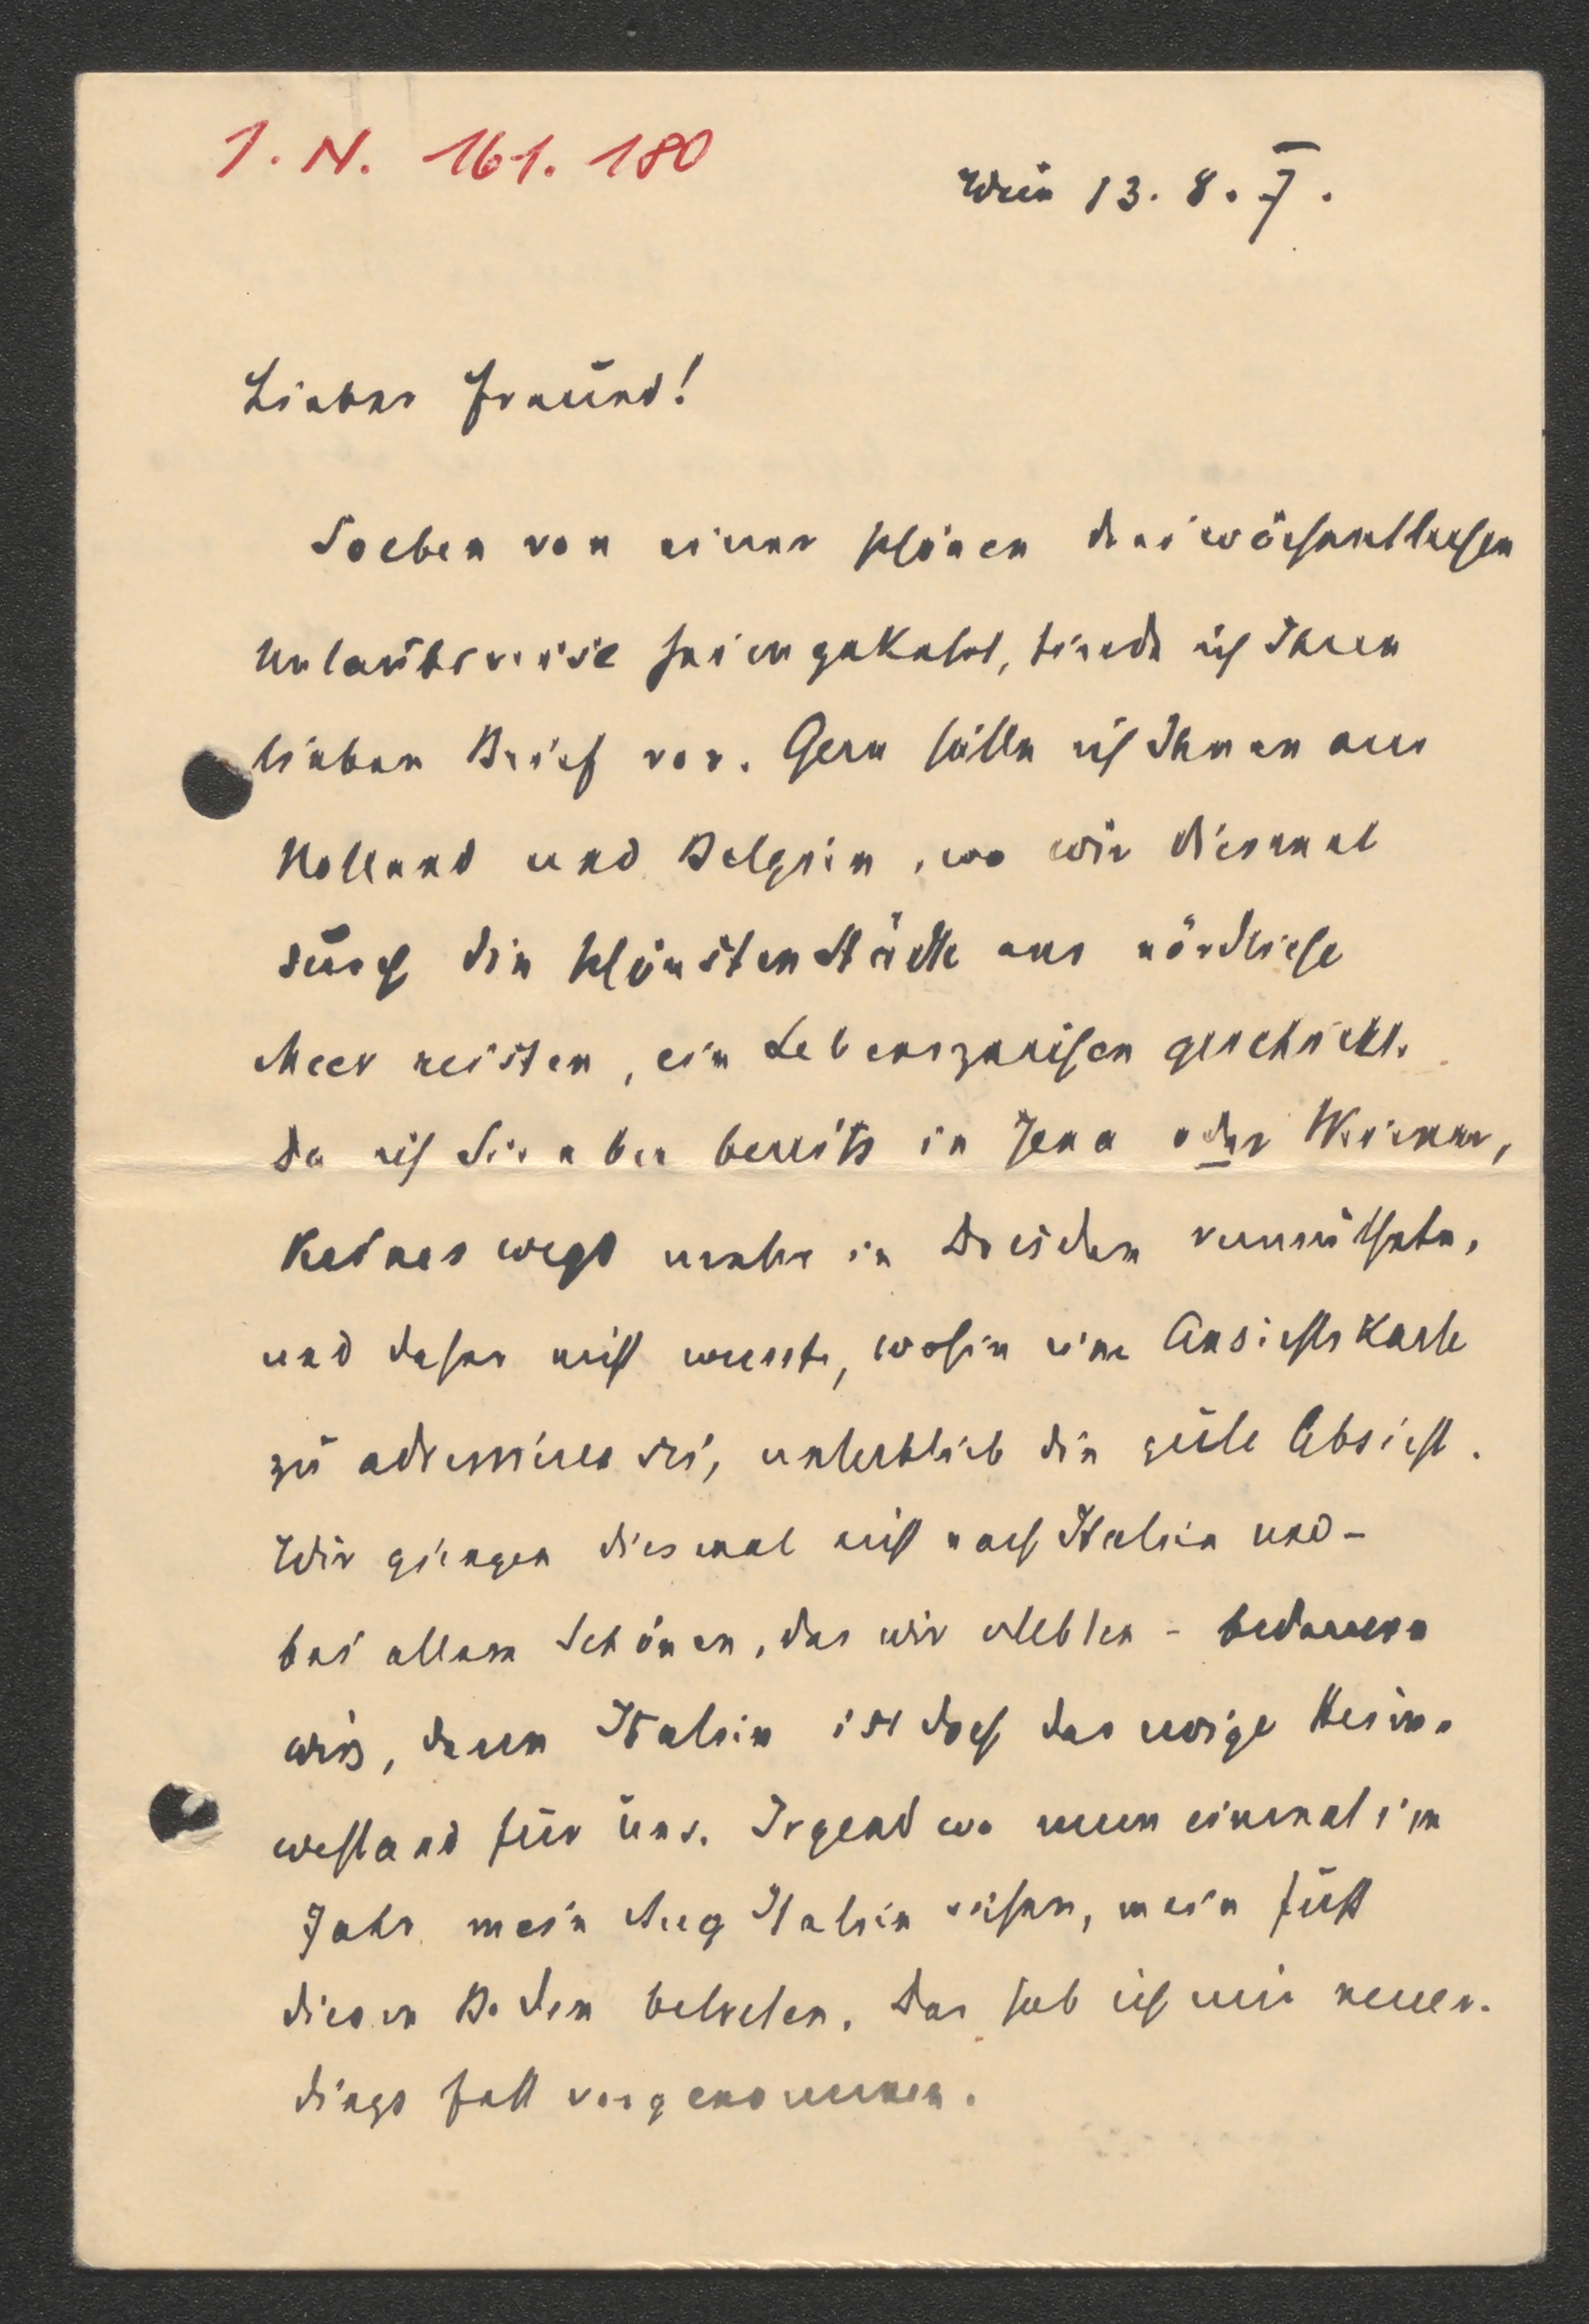 I. N. 161.180
Wien 13. 8. 7.
Lieber Freund!
Soeben von einer schönen dreiwöchentlichen
Urlaubsreise heimgekehrt, finde ich Ihren
lieben Brief vor. Gern hätte ich Ihnen aus
Holland und Belgien, wo wir diesmal
durch die schönsten Städte ans nördliche
Meer reisten, ein Lebenszeichen geschickt.
Da ich Sie aber bereits in Jena oder Weimar,
keineswegs mehr in Dresden vermuthete,
und daher nicht wusste, wohin eine Ansichtskarte
zu adressieren sei, unterblieb die gute Absicht.
Wir giengen diesmal nicht nach Italien und –
bei allem Schönen, das wir erlebten – bedauern
wirs, denn Italien ist doch das ewige Heim-
wehland für uns. Irgendwo muss einmal im
Jahr mein Aug Italien sehen, mein Fuß
diesen Boden betreten. Das hab ich mir neuer-
dings fest vorgenommen.